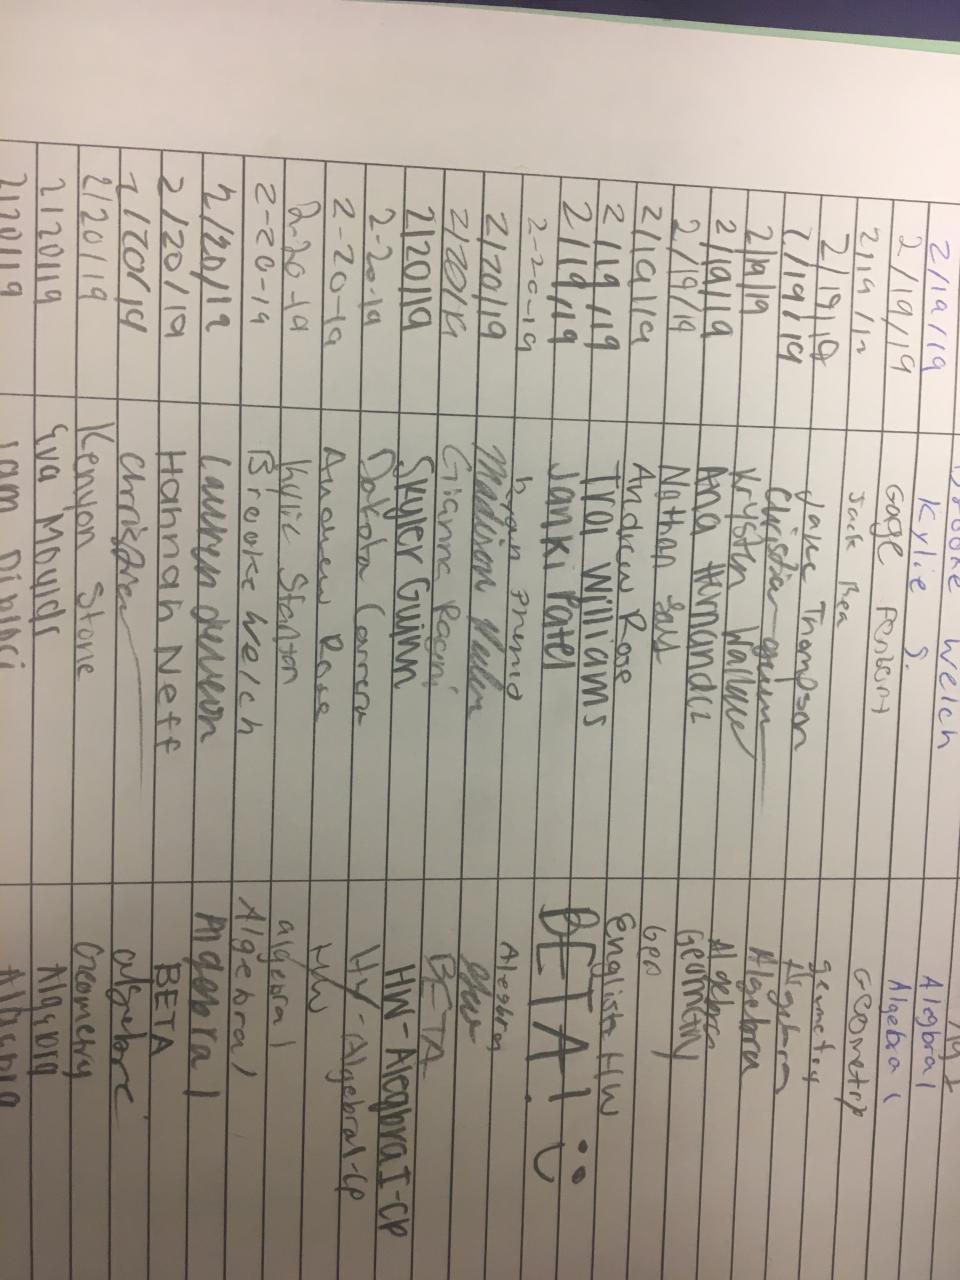 Alg 1
2/19/19 Brooke Welch Alegbra 1
2/19/19 Kylie S. Algebra 1
2/19/19 Gage
2/19/19 Jack Rea Geometry
2/19/19 Jake Thompson geometry
2/19/19 Christian Algebra
2/19/19 Krysten Wallace Algebra
2/19/19 Ana Hernandez Algebra
2/19/19 Nathan Geometry
2/19/19 Andrew Rose Geo
2/19/19 Trai Williams English HW
2/19/19 Janki Patel BETA! Ü
2-20-19 bryan Alegbra
2/20/19 Madison
2/20/19 Gianna BETA
2/20/19 Skyler Guinn HW-Alegbra I-CP
2-20-19 Dakota Carrera HW-Algebra1-CP
2-20-19 Andrew Rose HW
2-20-19 Kylie Stanton algebra 1
2-20-19 Brooke Welch Algebra 1
2/20/19 Lauren Algebra 1
2/20/19 Hannah Neff BETA
2/20/19 Algebra
2/20/19 Kenyon Stone Geometry
2/20/19 Eva
2/20/19